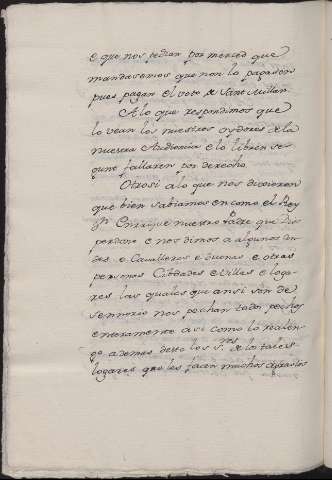 e que nos pedian por merced que
mandasemos que non lo pagasen
pues pagan el voto de Sant Millan.
A lo que respondimos que
lo vean los nuestros oydores de la
nuestra Audiencia e lo libren se
gunt fallaren por derecho.
Otrosi a lo que nos dixieron
que bien sabiamos en como el Rey
Dn Enrrique nuestro Padre que Dios
perdone e nos dimos a algunos Con
des e Cavalleros e Duenas e otras
personas Cibdades e Villas e loga
res las quales que ansi son de
sennorio nos pechan todos pechos
enteramente asi como lo realen
go ademas desto los S.res de los tales
logares que les facen muchos